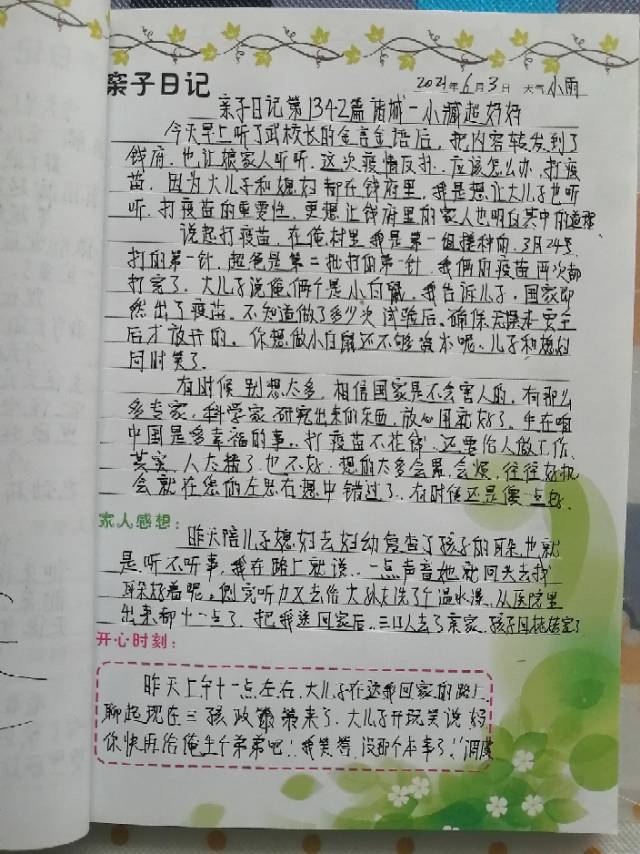 亲子日记 2021年6月3日 天气小雨
亲子日记第1342篇诸城-小臧超好好
今天早上听了武校长的金言金语后，把内容转发到了
钱府，也让娘家人听听，这次疫情反扑，应该怎么办，打疫
苗，因为大儿子和媳妇都在钱府里，我是想让大儿子也听
听，打疫苗的重要性，更想让钱府里的家人也明白其中的道理、
说起打疫苗，在俺村里我是第一组接种的，3月24号
打的第一针，超爸是第二批打的第一针，我俩的疫苗两次都
打完了，大儿子说俺俩个是小白鼠，我告诉儿子，国家即
然出了疫苗，不知道做了多少次试验后，确保安全
后才放开的，你想做小白鼠还不够资本呢，儿子和媳妇
同时笑了.
有时候别想太多，相信国家是不会害人的，有那么
多专家，科学家研究出来的东西，放心用就好了，生在咱
中国是多幸福的事，打疫苗不花钱，还要给人做工作，
其实，人太精了也不好，想的太多会累，会烦，往往好机
会就在您的左思右想中错过了，有时候还是傻一点好、
家人感想：
昨天陪儿子媳妇去妇幼复查了孩子的耳朵也就
是听不听事，我在路上就说，一点声音她就回头去找
耳朵好着呢，测完听力又去给大孙女洗了个温水澡，从医院里
出来都十一点了，把我送回家后，三口人去了亲家，孩子回姥姥家了
开心时刻：
昨天上午十一点左右，大儿子在送我回家的路上，
聊起现在三孩政策来了，大儿子开玩笑说妈
你快再给俺生个弟弟吧！我笑答，没那个本事了！